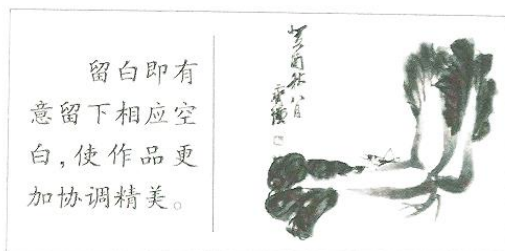 留白即有
意留下相应空
白,使作品更
加协调精美。
癸酉秋八月